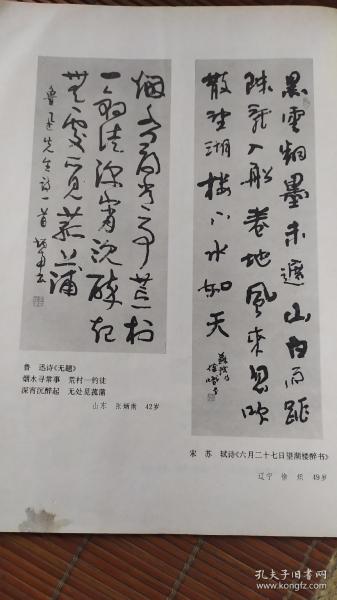 黑雲翻墨未遮山白雨跳
珠亂入船卷地風來忽吹
散望湖樓下水如天
烟水尋常事荒村
一钓徒深宵沉醉起
無處覓菰蒲
鲁迅先生詩一首
鲁 迅诗《无题》
烟水寻常事 荒村一钓徒
深宵沉醉起 无处觅菰蒲
山东 张炳南 42岁
宋 苏 轼诗《六月二十七日望湖楼醉书》
辽宁 徐 炽 49岁
孔夫子旧书网